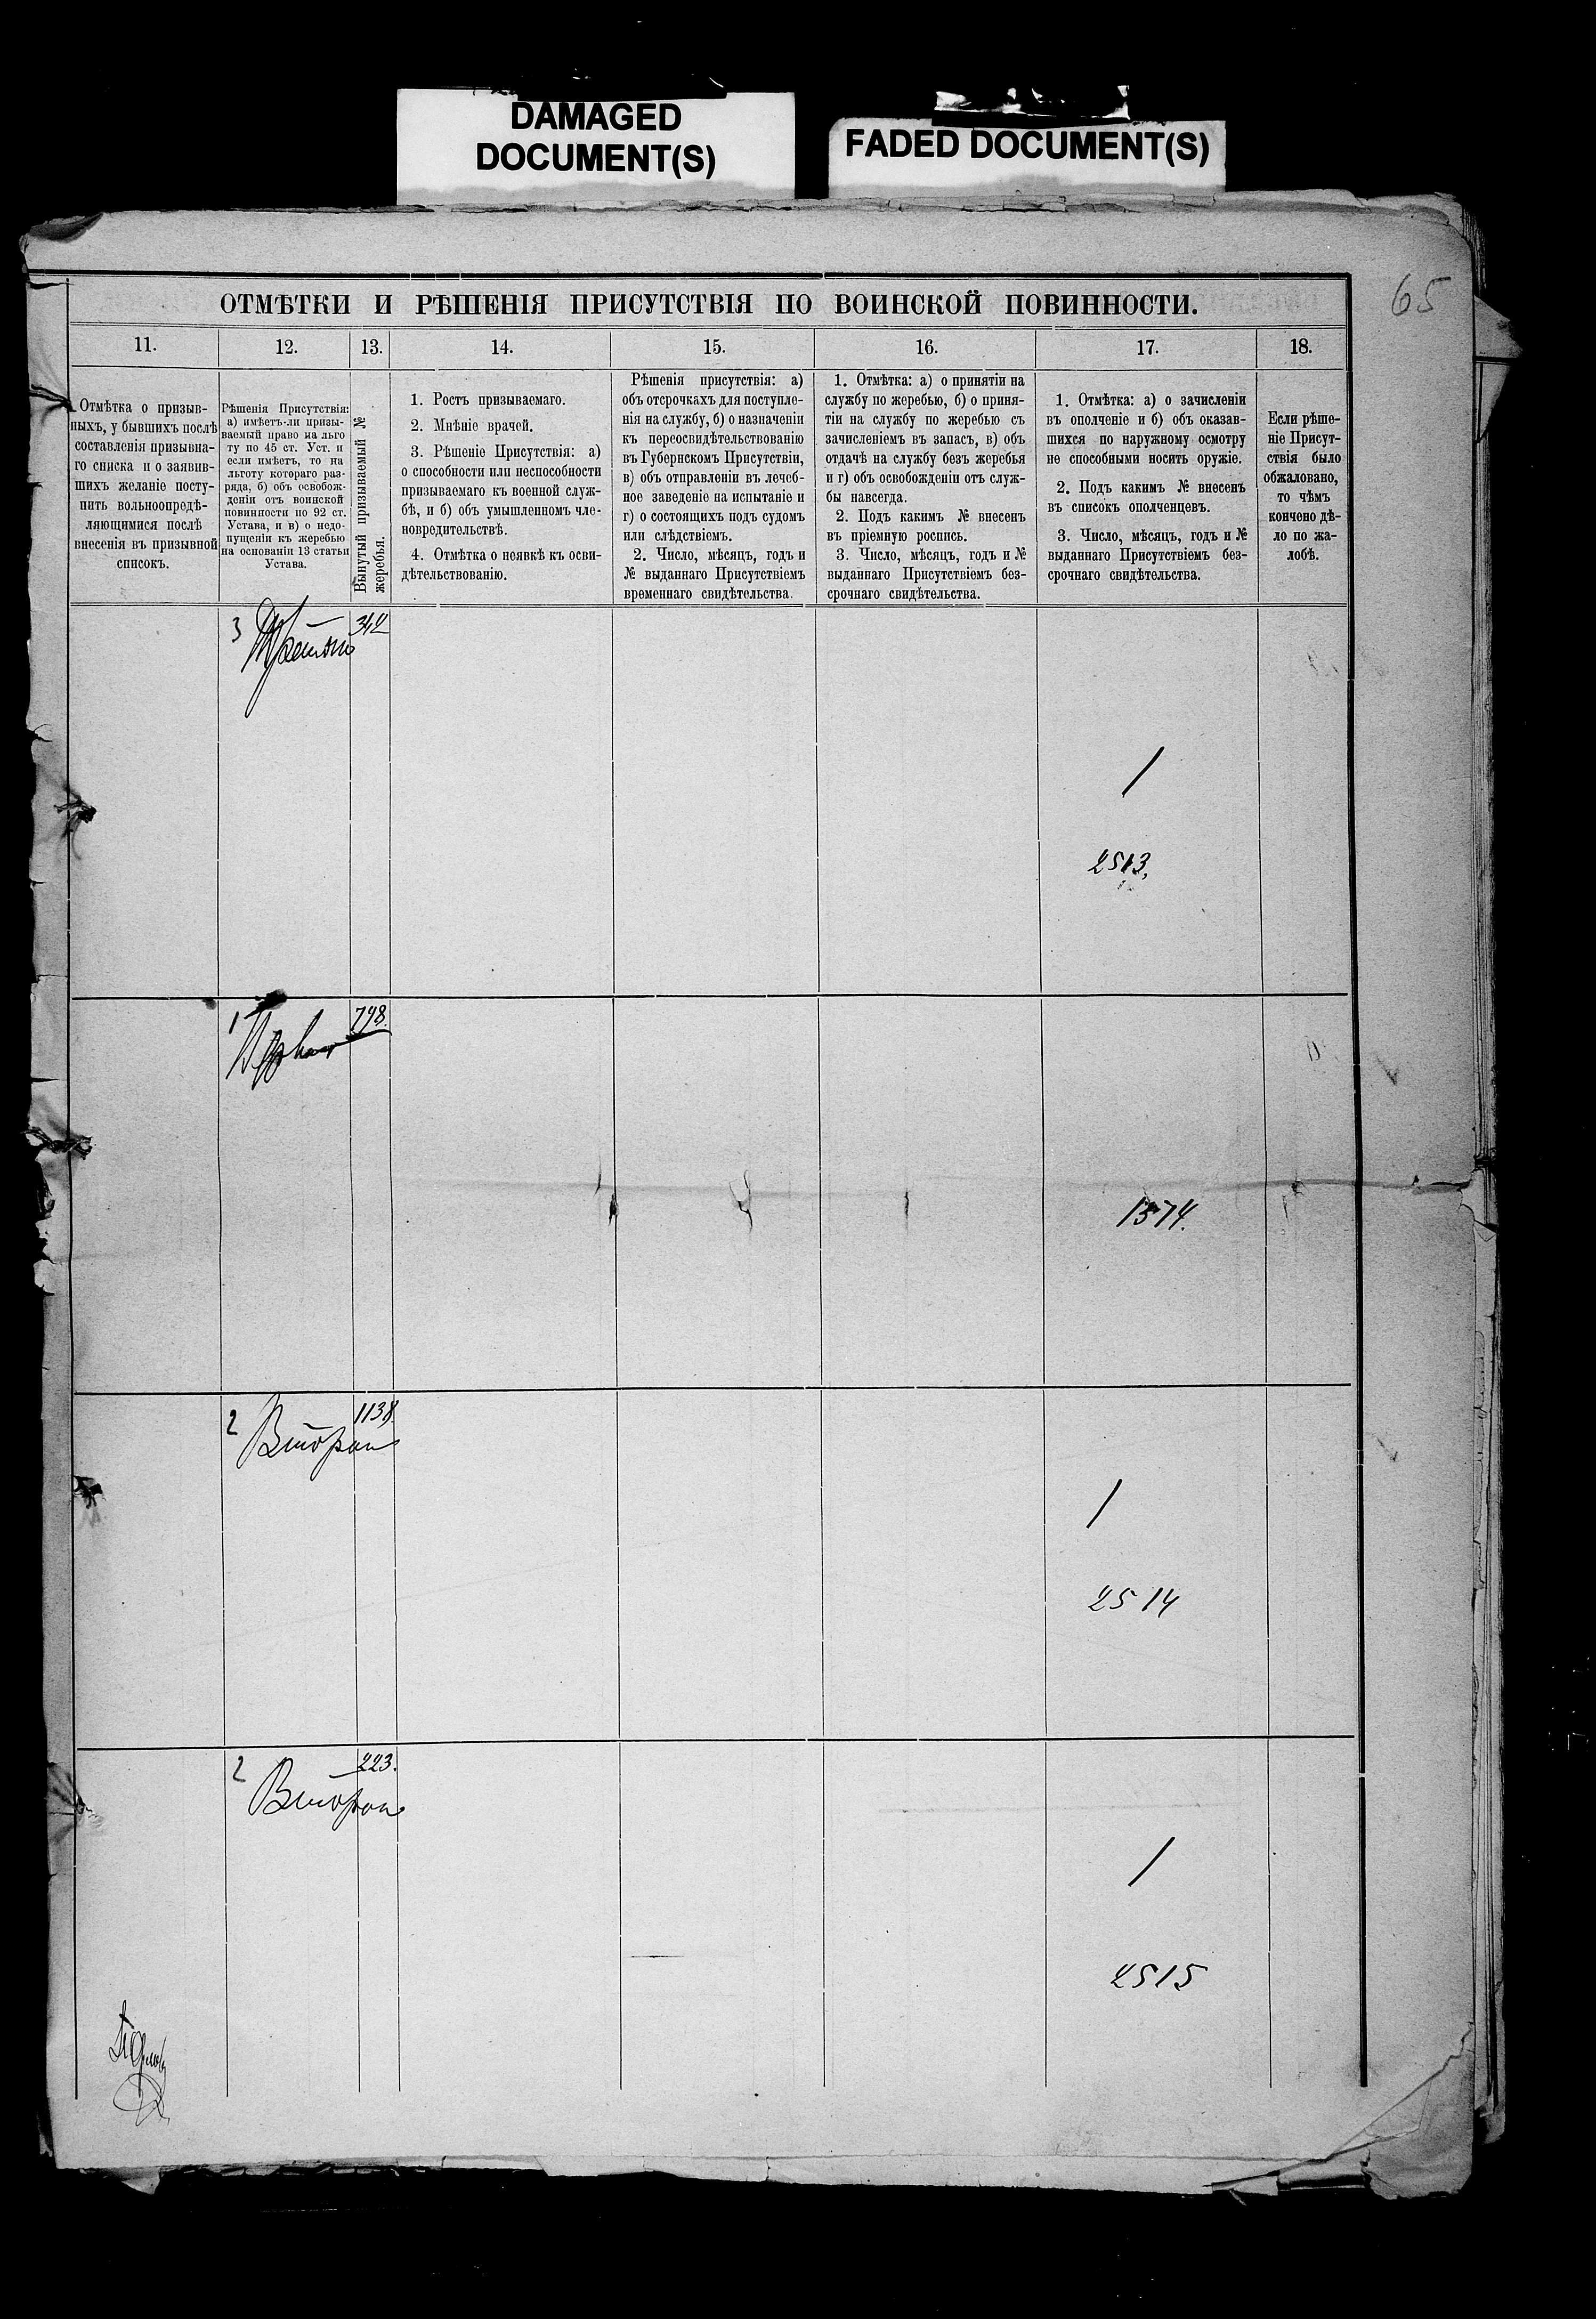 DAMAGED
DOCUMENT(S)
FADED DOCUMENT(S)
65
ОТМѢТКИ И РѢШЕНІЯ ПРИСУТСТВІЯ ПО ВОИНСКОЙ ПОВИННОСТИ.
11.
12.
13.
14.
15.
16.
17.
18.
Отмѣтка о призыв-
ныхъ, у бывшихъ послѣ
составленія призывна-
го списка и о заявив-
шихъ желаніе посту-
пить вольноопредѣ-
ляющимися послѣ
внесенія въ призывной
списокъ.
Рѣшенія Присутствія:
а) имѣетъ-ли призы-
ваемый право на льго
ту по 45 ст. Уст. и
если имѣетъ, то на
льготу котораго раз-
ряда, б) объ освобож-
деніи отъ воинской
повинности по 92 ст.
Устава, и в) о недо-
пущеніи къ жеребью
на основаніи 13 статьи
Устава.
Вынутый призываемый №
жеребья.
1. Ростъ призываемаго.
2. Мнѣніе врачей.
3. Рѣшеніе Присутствія: а)
о способности или неспособности
призываемаго къ военной служ-
бѣ, и б) объ умышленномъ чле-
новредительствѣ.
4. Отмѣтка о неявкѣ къ осви-
дѣтельствованію.
Рѣшенія присутствія: а)
объ отсрочкахъ для поступле-
нія на службу, б) о назначеніи
къ переосвидѣтельствованію
въ Губернскомъ Присутствіи,
в) объ отправленіи въ лечеб-
ное заведеніе на испытаніе и
г) о состоящихъ подъ судомъ
или слѣдствіемъ.
2. Число, мѣсяцъ, годъ и
№ выданнаго Присутствіемъ
временнаго свидѣтельства.
1. Отмѣтка: а) о принятіи на
службу по жеребью, б) о приня-
тіи на службу по жеребью съ
зачисленіемъ въ запасъ, в) объ
отдачѣ на службу безъ жеребья
и г) объ освобожденіи отъ служ-
бы навсегда.
2. Подъ какимъ № внесенъ
въ пріемную роспись.
3. Число, мѣсяцъ, годъ и №
выданнаго Присутствіемъ без-
срочнаго свидѣтельства.
1. Отмѣтка: а) о зачисленіи
въ ополченіе и б) объ оказав-
шихся по наружному осмотру
не способными носить оружіе.
2. Подъ какимъ № внесенъ
въ списокъ ополченцевъ.
3. Число, мѣсяцъ, годъ и №
выданнаго Присутствіемъ без-
срочнаго свидѣтельства.
Если рѣше-
ніе Присут-
ствія было
обжаловано,
то чѣмъ
кончено дѣ-
ло по жа-
лобѣ.
3
342
1
2513,
1
798.
1574.
2 Вторая
1138
1
2514
2 Вторая
223.
1
2515